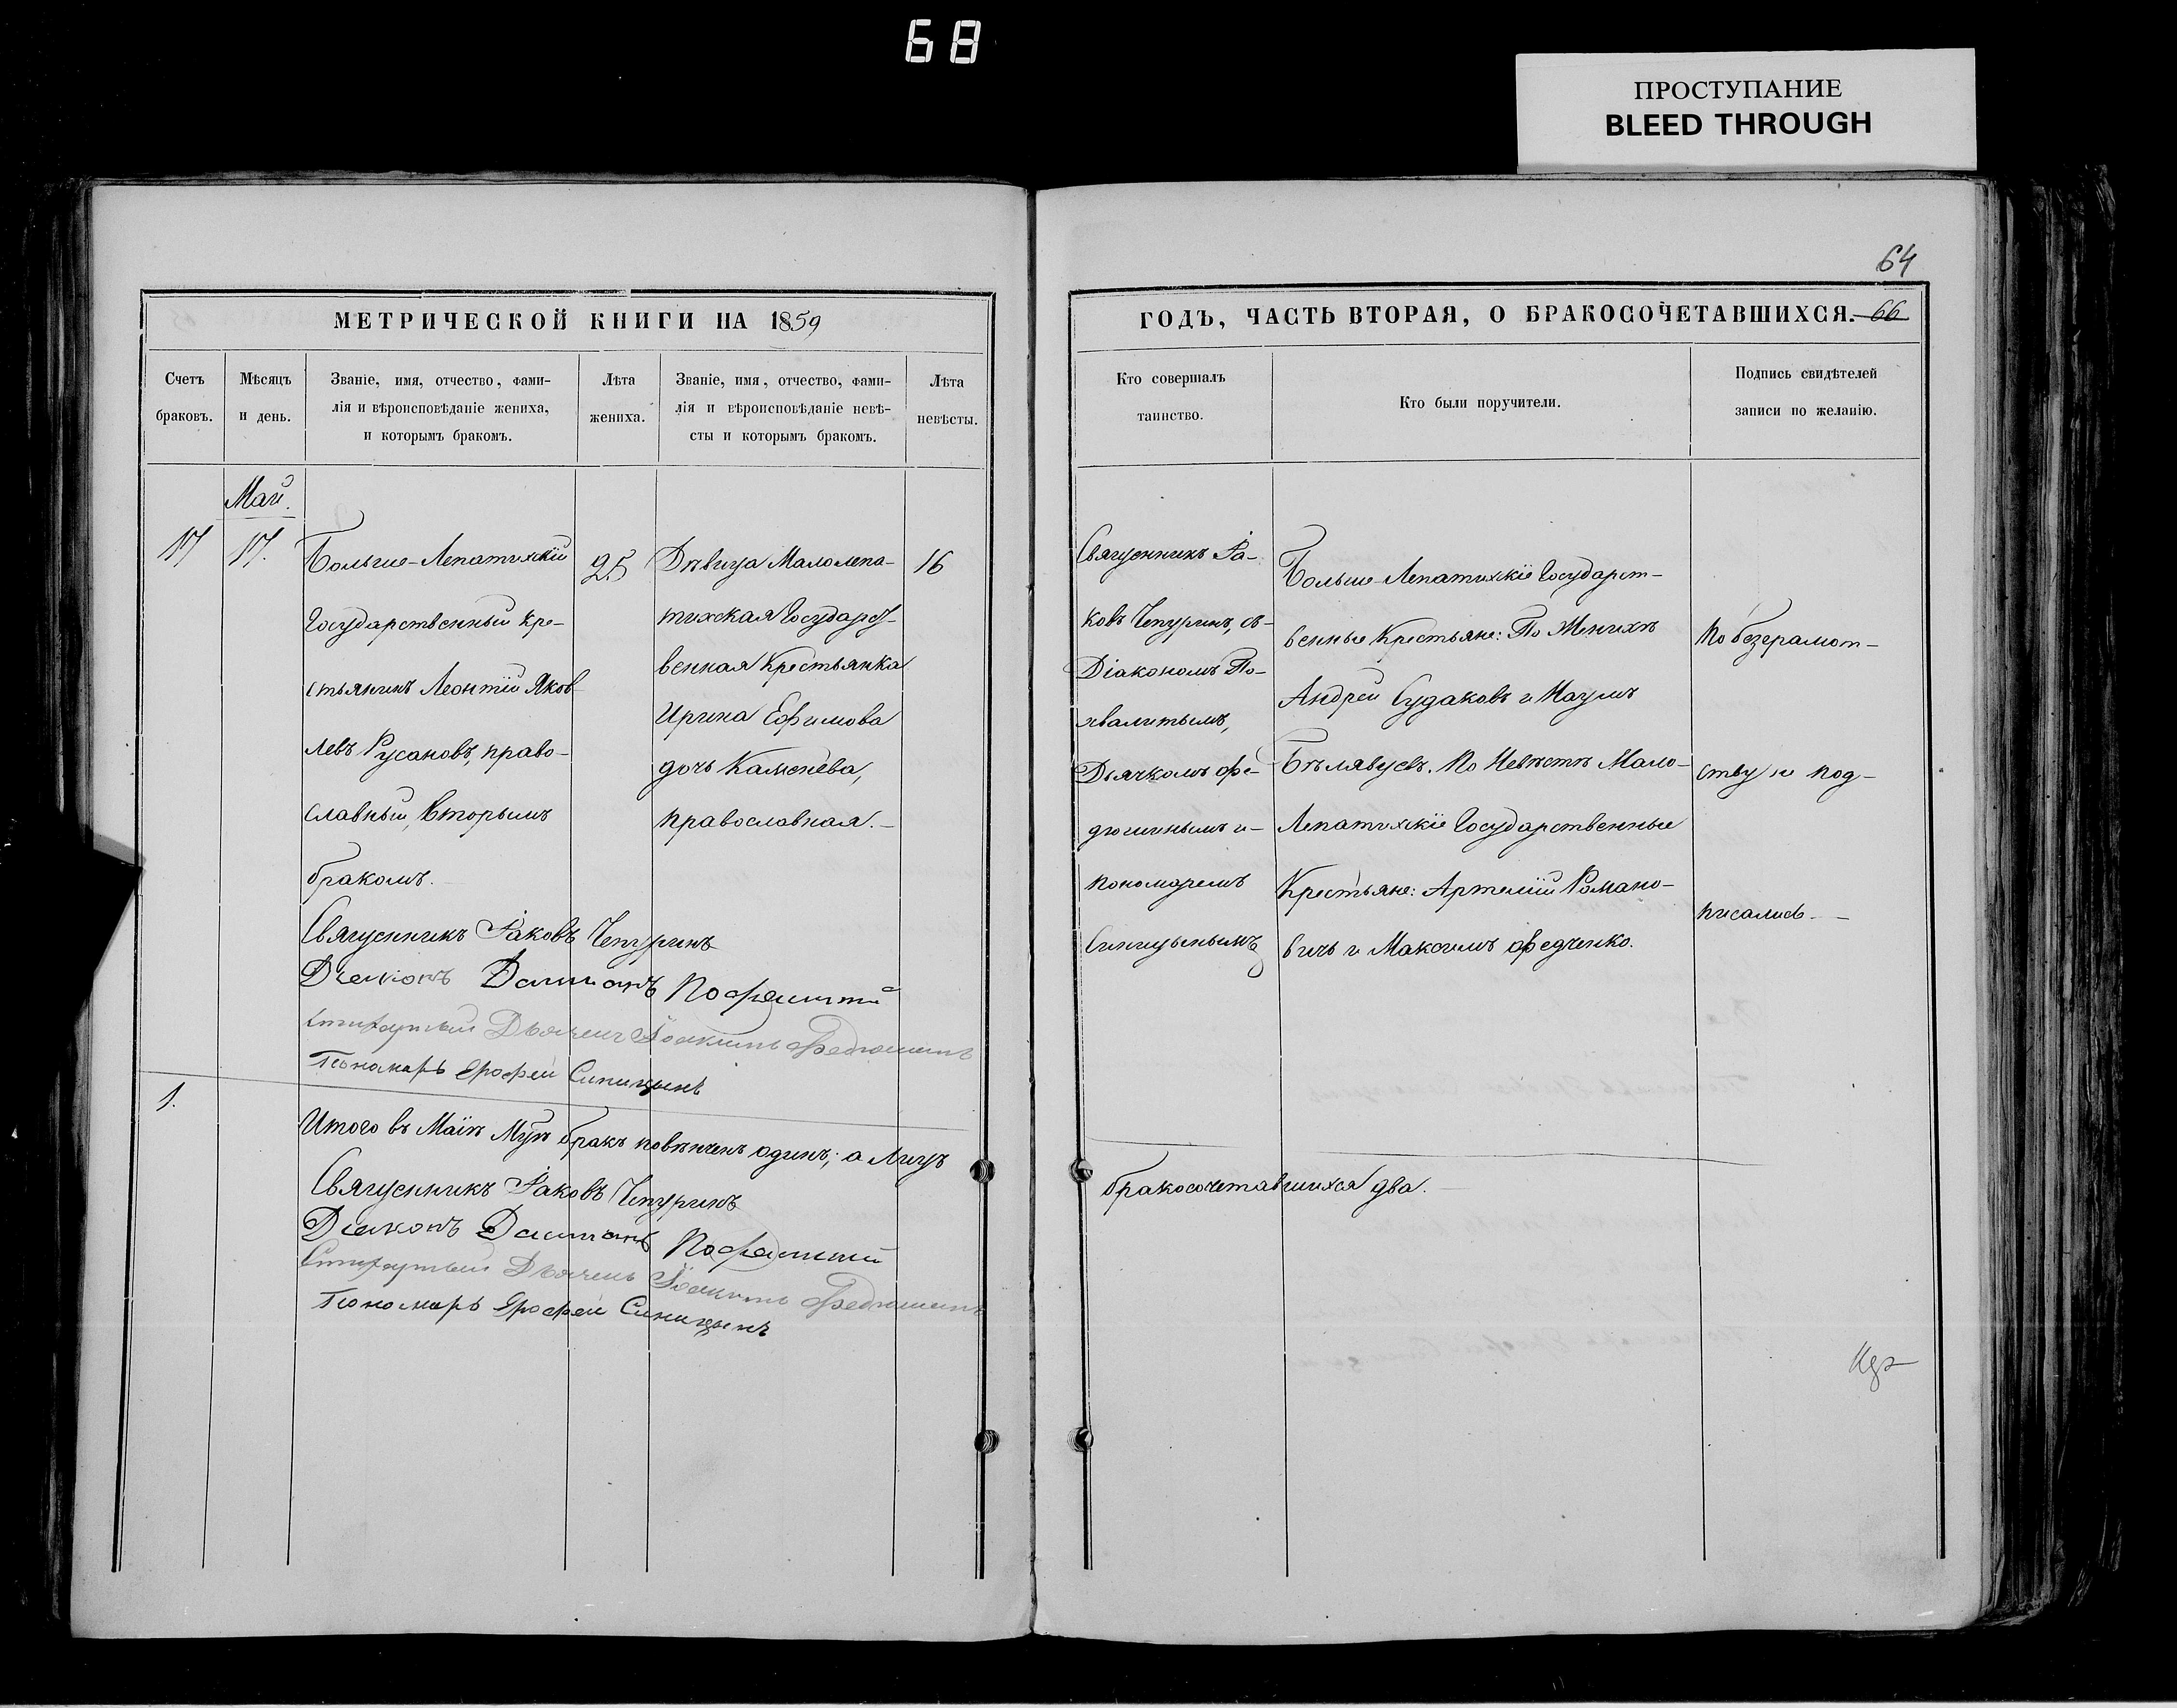 68
ПРОСТУПАНИЕ
BLEED THROUGH
МЕТРИЧЕСКОЙ КНИГИ НА 1859
Счетъ браковъ.
Мѣсяцъ и день.
Званіе, имя, отчество, фами-
лія и вѣроисповѣданіе жениха,
и которымъ бракомъ.
Лѣта жениха.
Званіе, имя, отчество, фами-
лія и вѣроисповѣданіе невѣ-
сты и которымъ бракомъ.
Лѣта невѣсты.
Май.
17
17.
Больше-Лепатихскій
Государственный кре-
стьянинъ Леонтій Яков-
левъ Русановъ, право-
славный, вторымъ
бракомъ.
25
Дѣвица Малолепа-
тихская Государст-
венная Крестьянка
Ирина Ефимова
дочь Каменева,
православная.-
16
Священникъ Іаковъ Чепуринъ
Діаконъ
Дьячекъ Іоакимъ Федюшинъ
Пономарь Ерофей Синицынъ
1.
Итого въ Маіѣ Мцѣ бракъ повѣнченъ одинъ; а Лицъ
Священникъ Іаковъ Чепуринъ
Діаконъ
Дьячекъ Іоакимъ Федюшинъ
Пономарь Ерофей Синицынъ
64
ГОДЪ, ЧАСТЬ ВТОРАЯ, О БРАКОСОЧЕТАВШИХСЯ. 66
Кто совершалъ
таинство.
Кто были поручители.
Подпись свидѣтелей
записи по желанію.
Священникъ Іа-
ковъ Чепуринъ, съ
Діакономъ По-
хвалитымъ,
Дьячкомъ Фе-
дюшинымъ и-
пономаремъ
Синицынымъ
Больше-Лепатихскіе Государст-
венные Крестьяне: По Женихѣ
Андрей Судаковъ и Наумъ
Бѣлявцевъ. По Невѣстѣ Мало-
Лепатихскіе Государственные
Крестьяне: Артемій Романо-
вичъ и Максимъ Федченко.
По безграмот-
ству не под-
писались.-
бракосочетавшихся два.